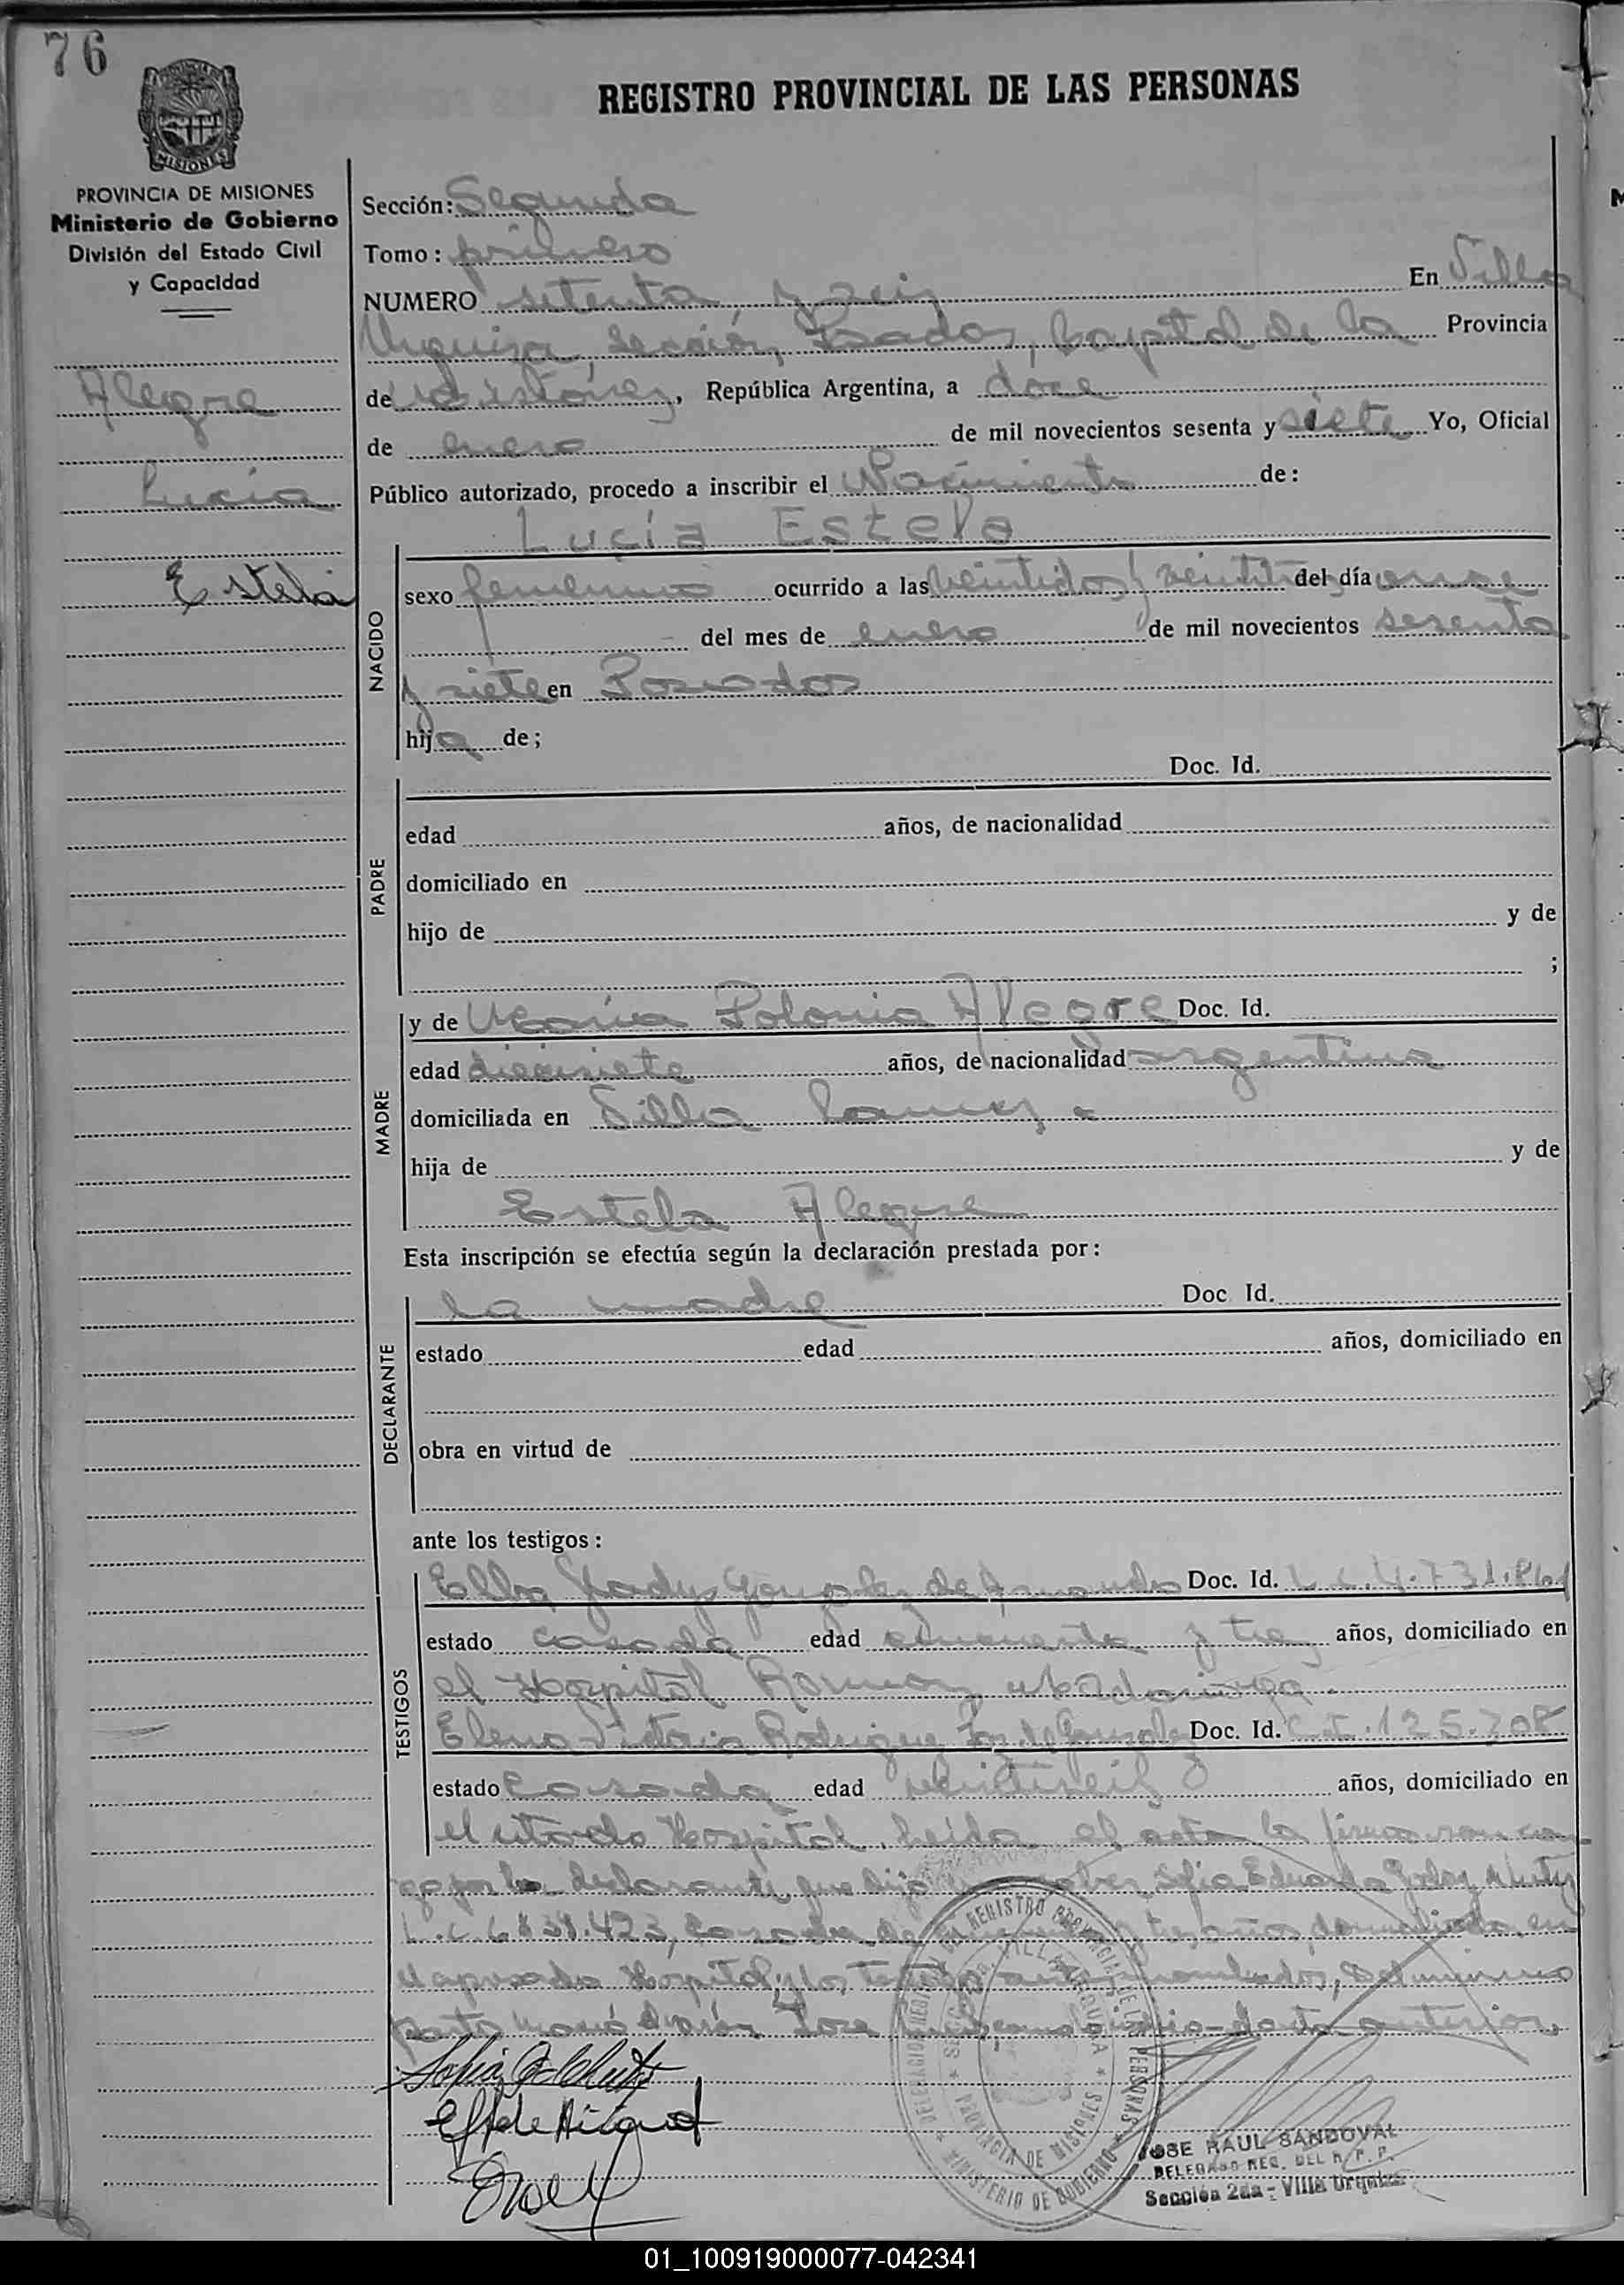 76
REGISTRO PROVINCIAL DE LAS PERSONAS
MISIONES
PROVINCIA DE MISIONES
Ministerio de Gobierno
División del Estado Civil
y Capacidad
Alegre
Lucía
Estela
Sección: Segunda
Tomo: primero
NUMERO setenta y seis En Villa
Urquiza Sección, Posadas, Capital de la Provincia
de Misiones, República Argentina, a doce
de enero de mil novecientos sesenta y siete Yo, Oficial
Público autorizado, procedo a inscribir el Nacimiento de:
Lucía Estela
NACIDO
sexo femenino ocurrido a las veintidos y veintitrés del día once
del mes de enero de mil novecientos sesenta
y siete en Posadas
hija de;
PADRE
Doc. Id.
edad años, de nacionalidad
domiciliado en
hijo de y de
;
MADRE
y de María Polonia Alegre Doc. Id.
edad diecisiete años, de nacionalidad argentina
domiciliada en Villa
hija de y de
Estela Alegre
Esta inscripción se efectúa según la declaración prestada por:
DECLARANTE
la madre Doc Id.
estado edad años, domiciliado en
obra en virtud de
ante los testigos:
TESTIGOS
Gladys González de Doc. Id. L.C. 4.731.861
estado casada edad cincuenta y tres años, domiciliado en
el Hospital Ramón Madariaga.
Elena Victoria Rodríguez de González Doc. Id. C.I. 125.708
estado Casada edad veintiseis años, domiciliado en
el citado Hospital. Leída el acta la firma
por la declarante que dijo no saber, Sofía
L.C. casada, de y tres años, domiciliada en
el Hospital, y los testigos nombrados,
anterior.
DELEGACION REGIONAL DEL REGISTRO PROVINCIAL DE LAS PERSONAS
MINISTERIO DE GOBIERNO
VILLA URQUIZA
PROVINCIA DE MISIONES
JOSE RAUL SANDOVAL
DELEGADO REG. DEL R. P. P.
Sección 2da - Villa Urquiza
01_100919000077-042341